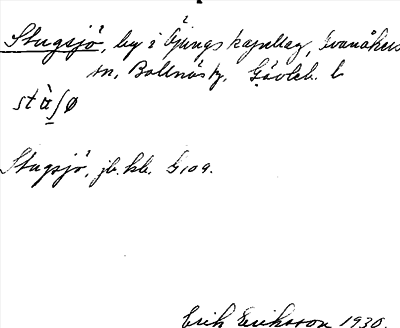 Stugsjö, by i Öjungs kapellag, Svanåkers
sn, Bollnäs tg, Gävleb. l
Stugsjö, jb. kb. G109.
Erik Eriksson 1930.